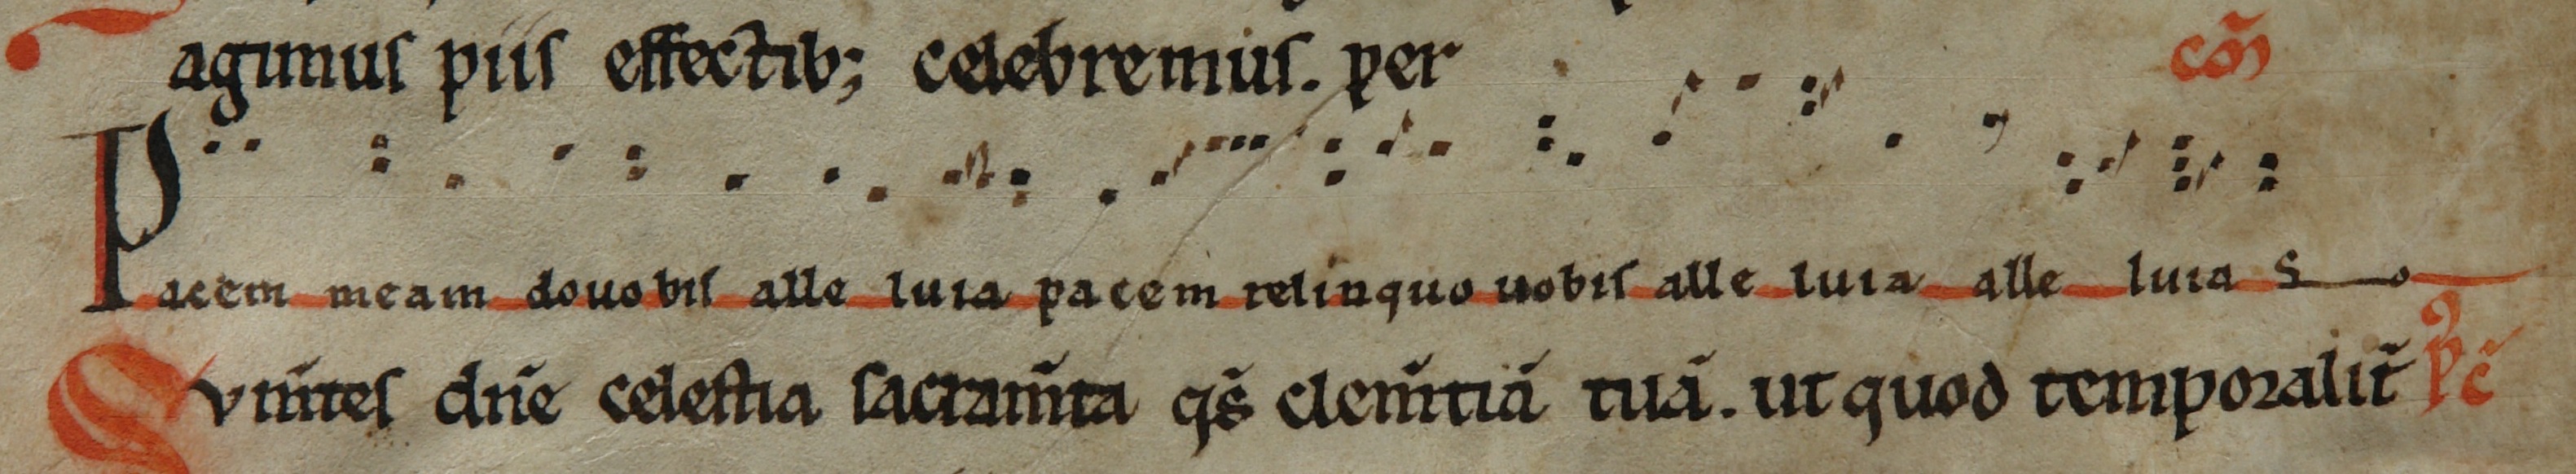 agimus piis effectib; celebremus. per
cō
Pacem meam do uobis alle luia pacem relinquo uobis alle luia alle luia
Svm̄tes dn̄e celestia sacram̄ta qs̄ clem̄tiā tuā. ut quod temporalit̄ pc̄